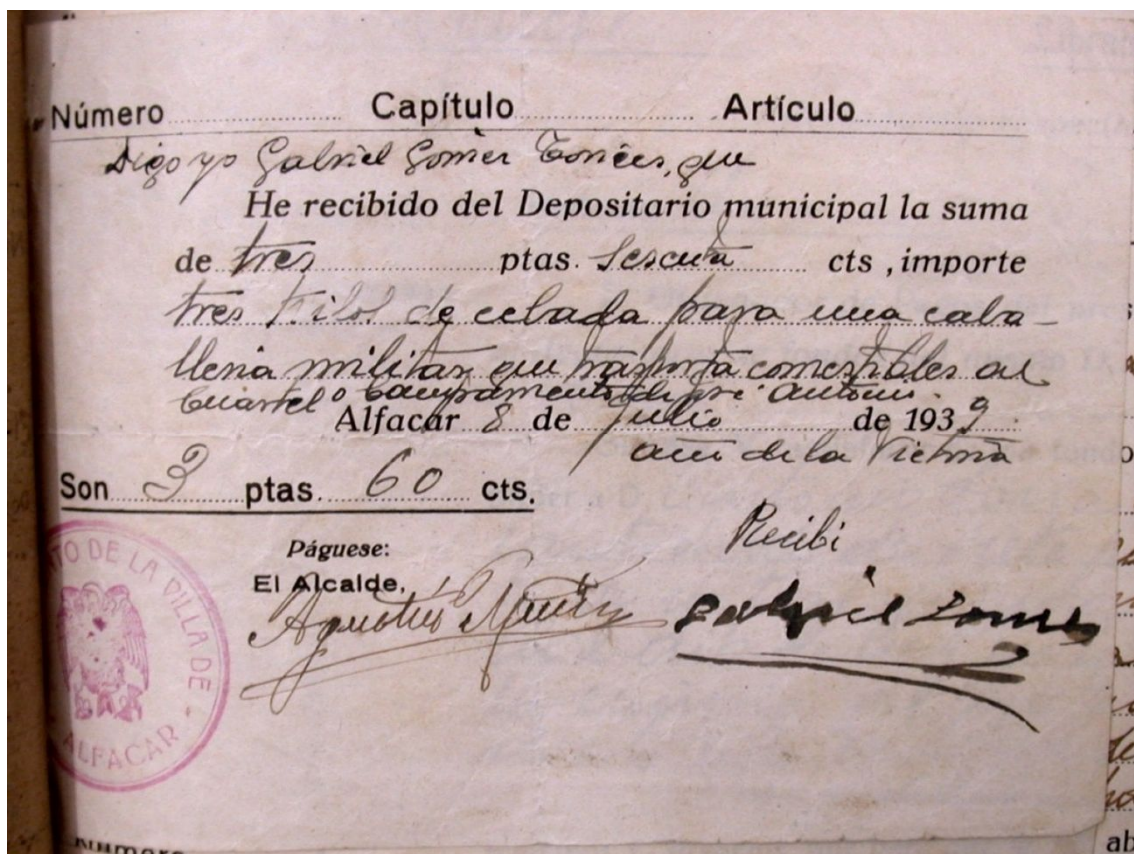 Número Capítulo Artículo
Digo yo Gabriel Gómez Torices, que
He recibido del Depositario municipal la suma
de tres ptas. sesenta cts , importe
tres kilos de cebada para una caba-
lleria militar que trasporta comestibles al
Cuartel o Campamento de José Antonio.
Alfacar 8 de Julio de 1939
año de la Victoria
Son 3 ptas. 60 cts.
Recibi
Páguese:
El Alcalde,
Agustín
Gabriel Gomez
TO DE LA VILLA DE
ALFACAR